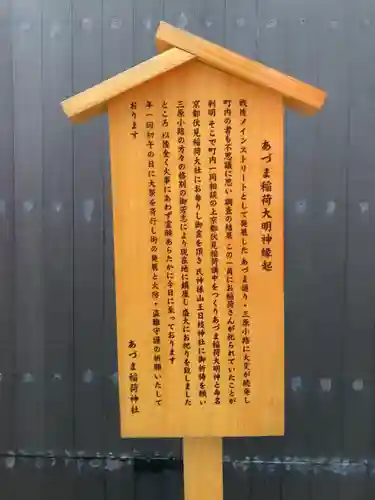 あづま稲荷大明神縁起
戦後メインストリートとして発展した あづま通り・三原小路に火災が続発し
町内の者も不思議に思い 調査の結果 この一角にお稲荷さんが祀られていたことが
判明 そこで町内一同相談の上京都伏見稲荷講中をつくり あづま稲荷大明神と命名
京都伏見稲荷大社にお参りし御霊を頂き 氏神様山王日枝神社に御祈祷を願い
三原小路の方々の格別の御芳志により現在地に鎮座し 盛大にお祀りを致しました
ところ 以後全く火事にあわず霊験あらたかに今日に至っております
年一回初午の日に大祭を斉行し街の発展と火防・盗難守護の祈願いたして
おります
あづま稲荷神社